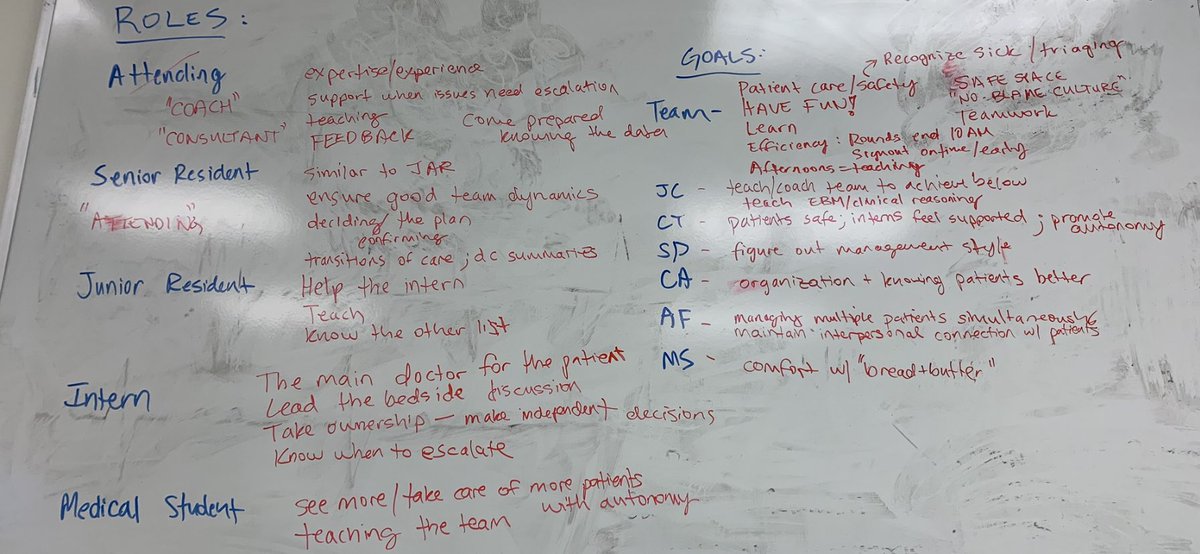 ROLES:
Attending
"COACH"
"CONSULTANT"
expertise/experience
support when issues need escalation
teaching
FEEDBACK
Come prepared
knowing the data
Senior Resident
"ATTENDING"
similar to JAR
ensure good team dynamics
deciding/the plan
confirming
transitions of care ; dc summaries
Junior Resident
Help the intern
Teach
Know the other list
Intern
The main doctor for the patient
Lead the bedside discussion
Take ownership — make independent decisions
Know when to escalate
Medical Student
see more/take care of more patients
with autonomy
teaching the team
GOALS:
→ Recognize sick/triaging
Team -
Patient care/safety
HAVE FUN!
Learn
Efficiency : Rounds end 10AM
Signout ontime/early
Afternoons = teaching
SAFE SPACE
"NO-BLAME CULTURE"
Teamwork
JC - teach/coach team to achieve below
teach EBM/clinical reasoning
CT - patients safe; interns feel supported ; promote
autonomy
SD - figure out management style
CA - organization + knowing patients better
AF - managing multiple patients simultaneously
maintain interpersonal connection w/ patients
MS - comfort w/ "bread+butter"